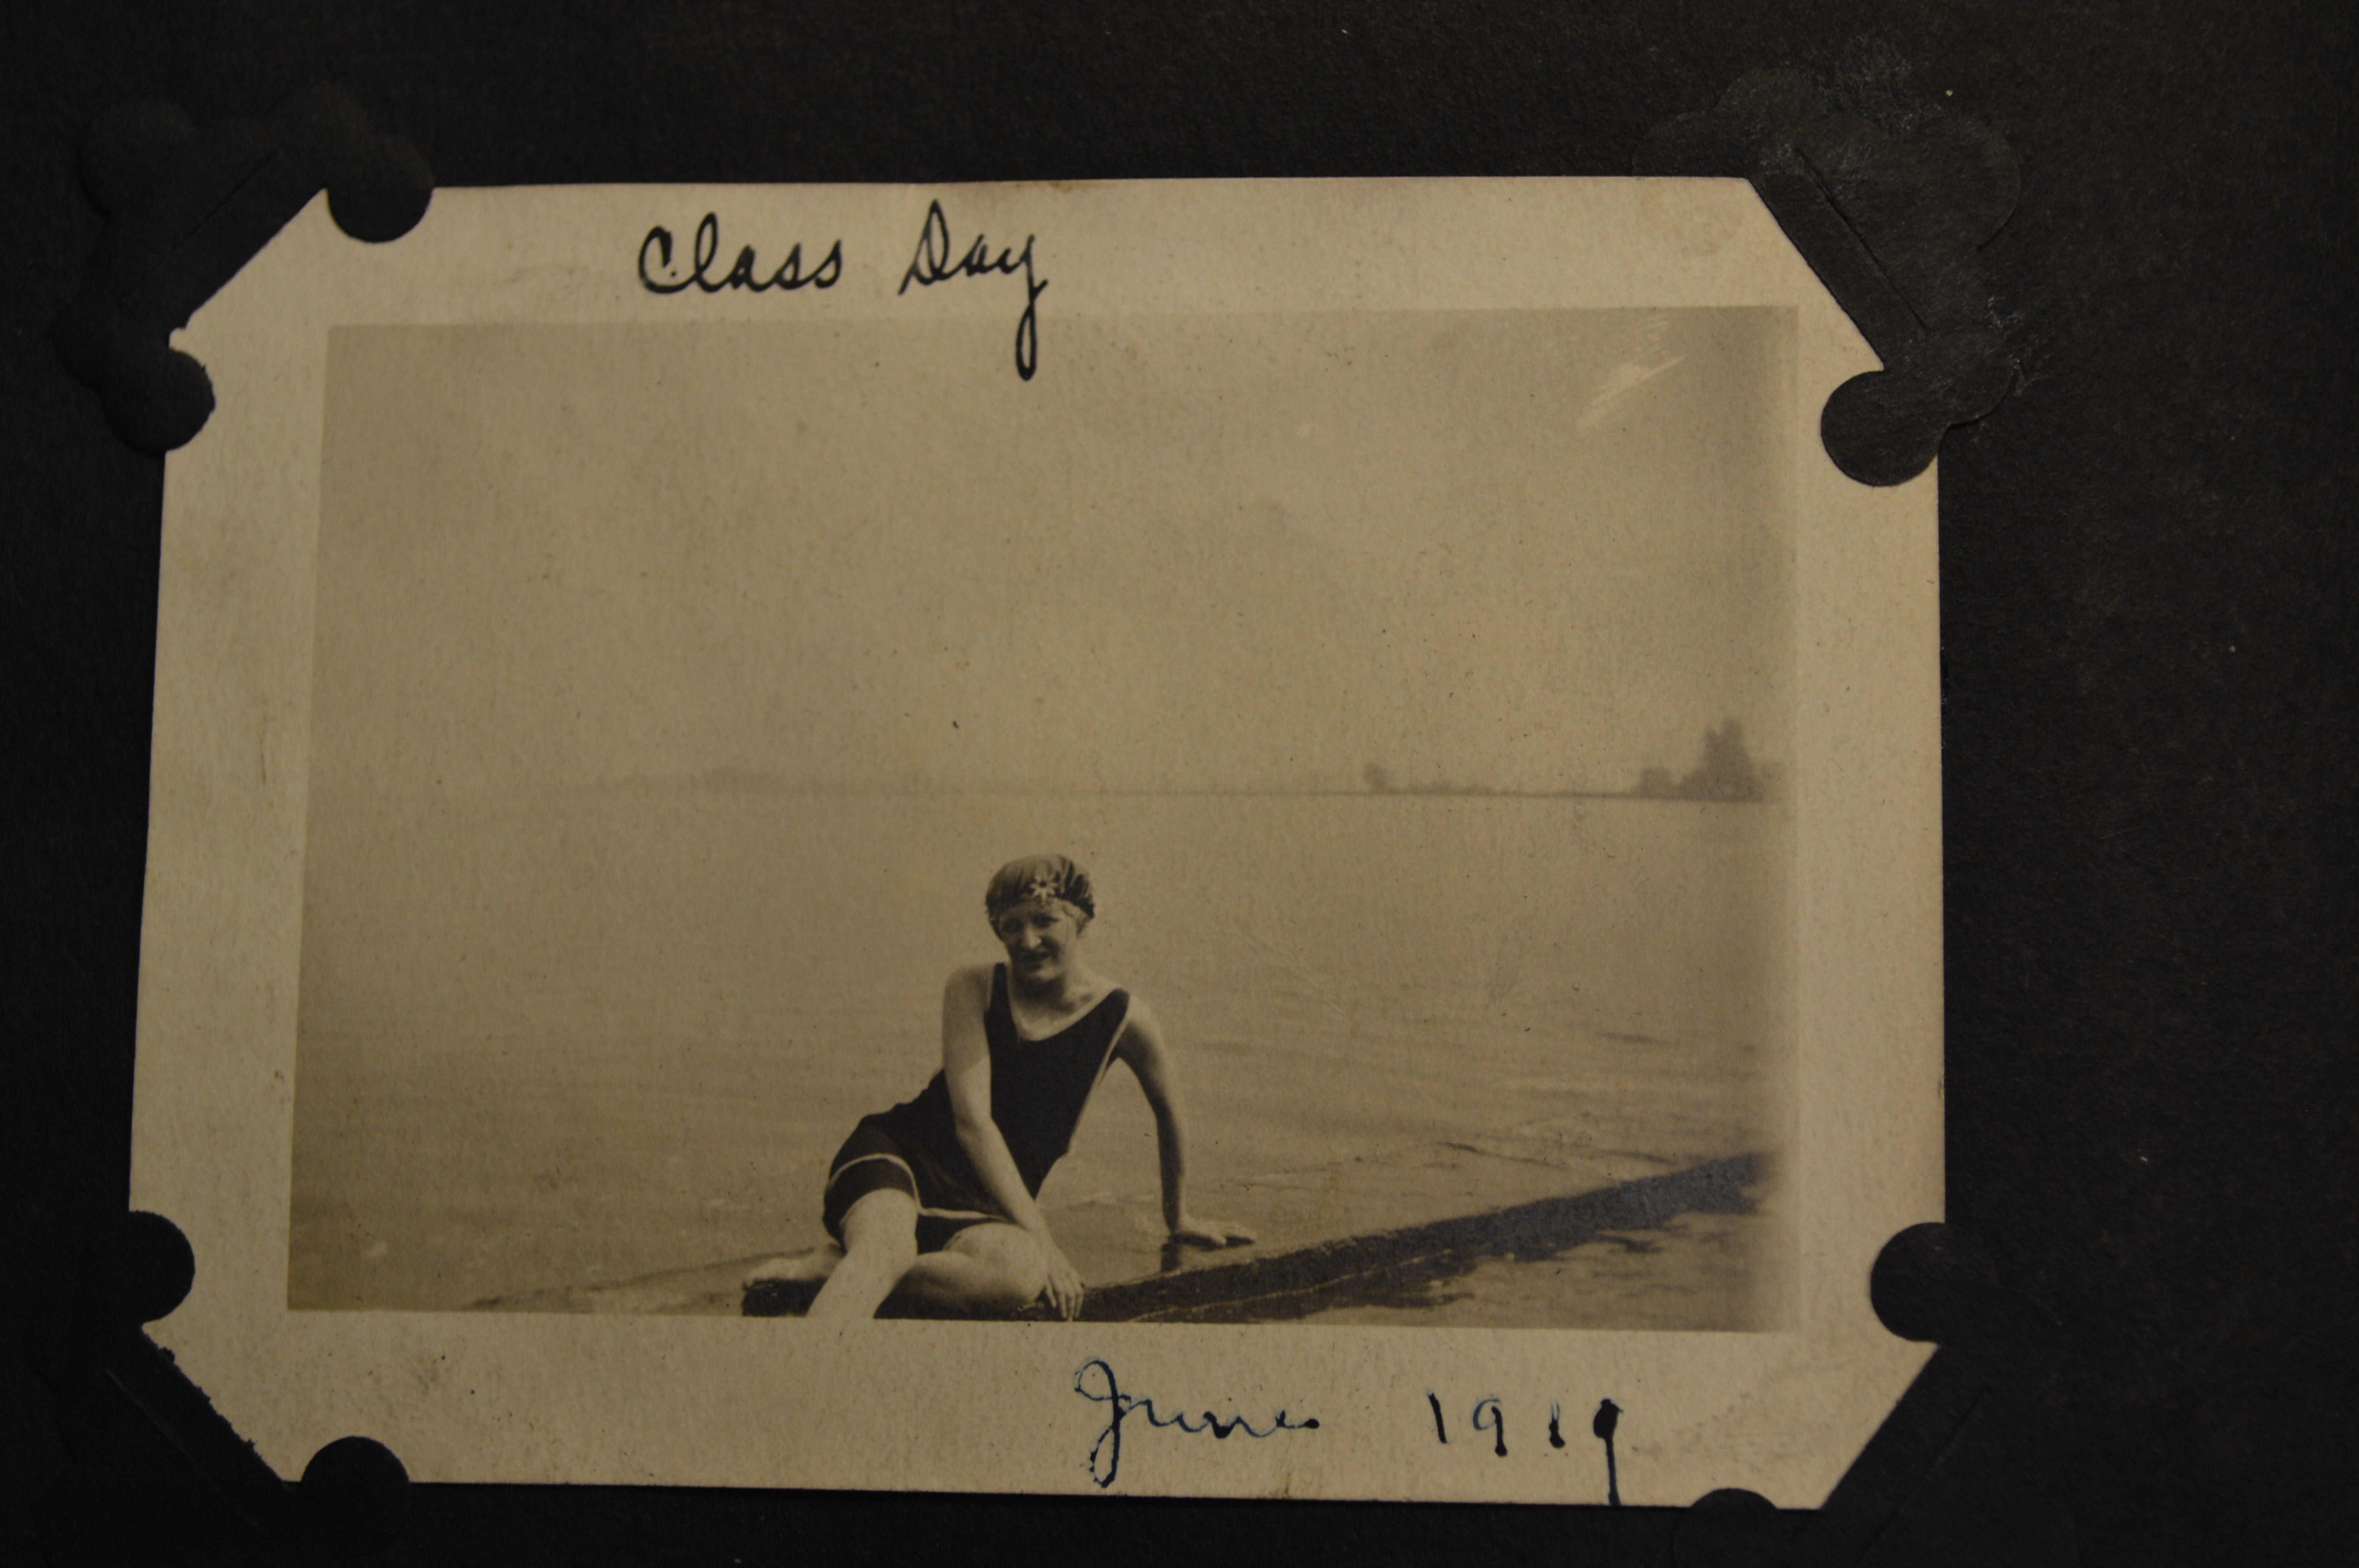 Class Day
June 1919